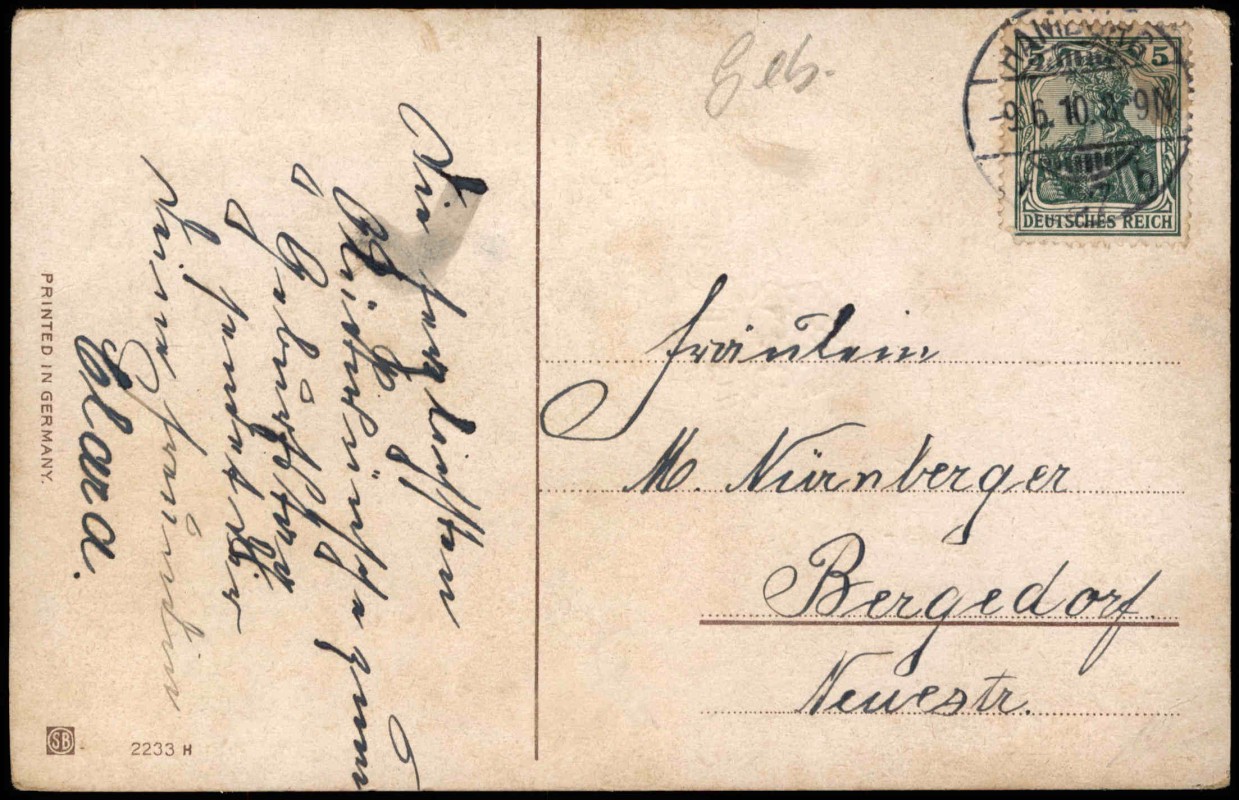 Geb.
HAMBURG
-9.6.10.8-9N
5 5
DEUTSCHES REICH
Fräulein
M. Nürnberger
Bergedorf.
Neuestr.
Die herzlichsten
Glückwünsche zum
Geburtstag
sendet Dir
Deine Freundin
Clara.
PRINTED IN GERMANY.
SB
2233 H